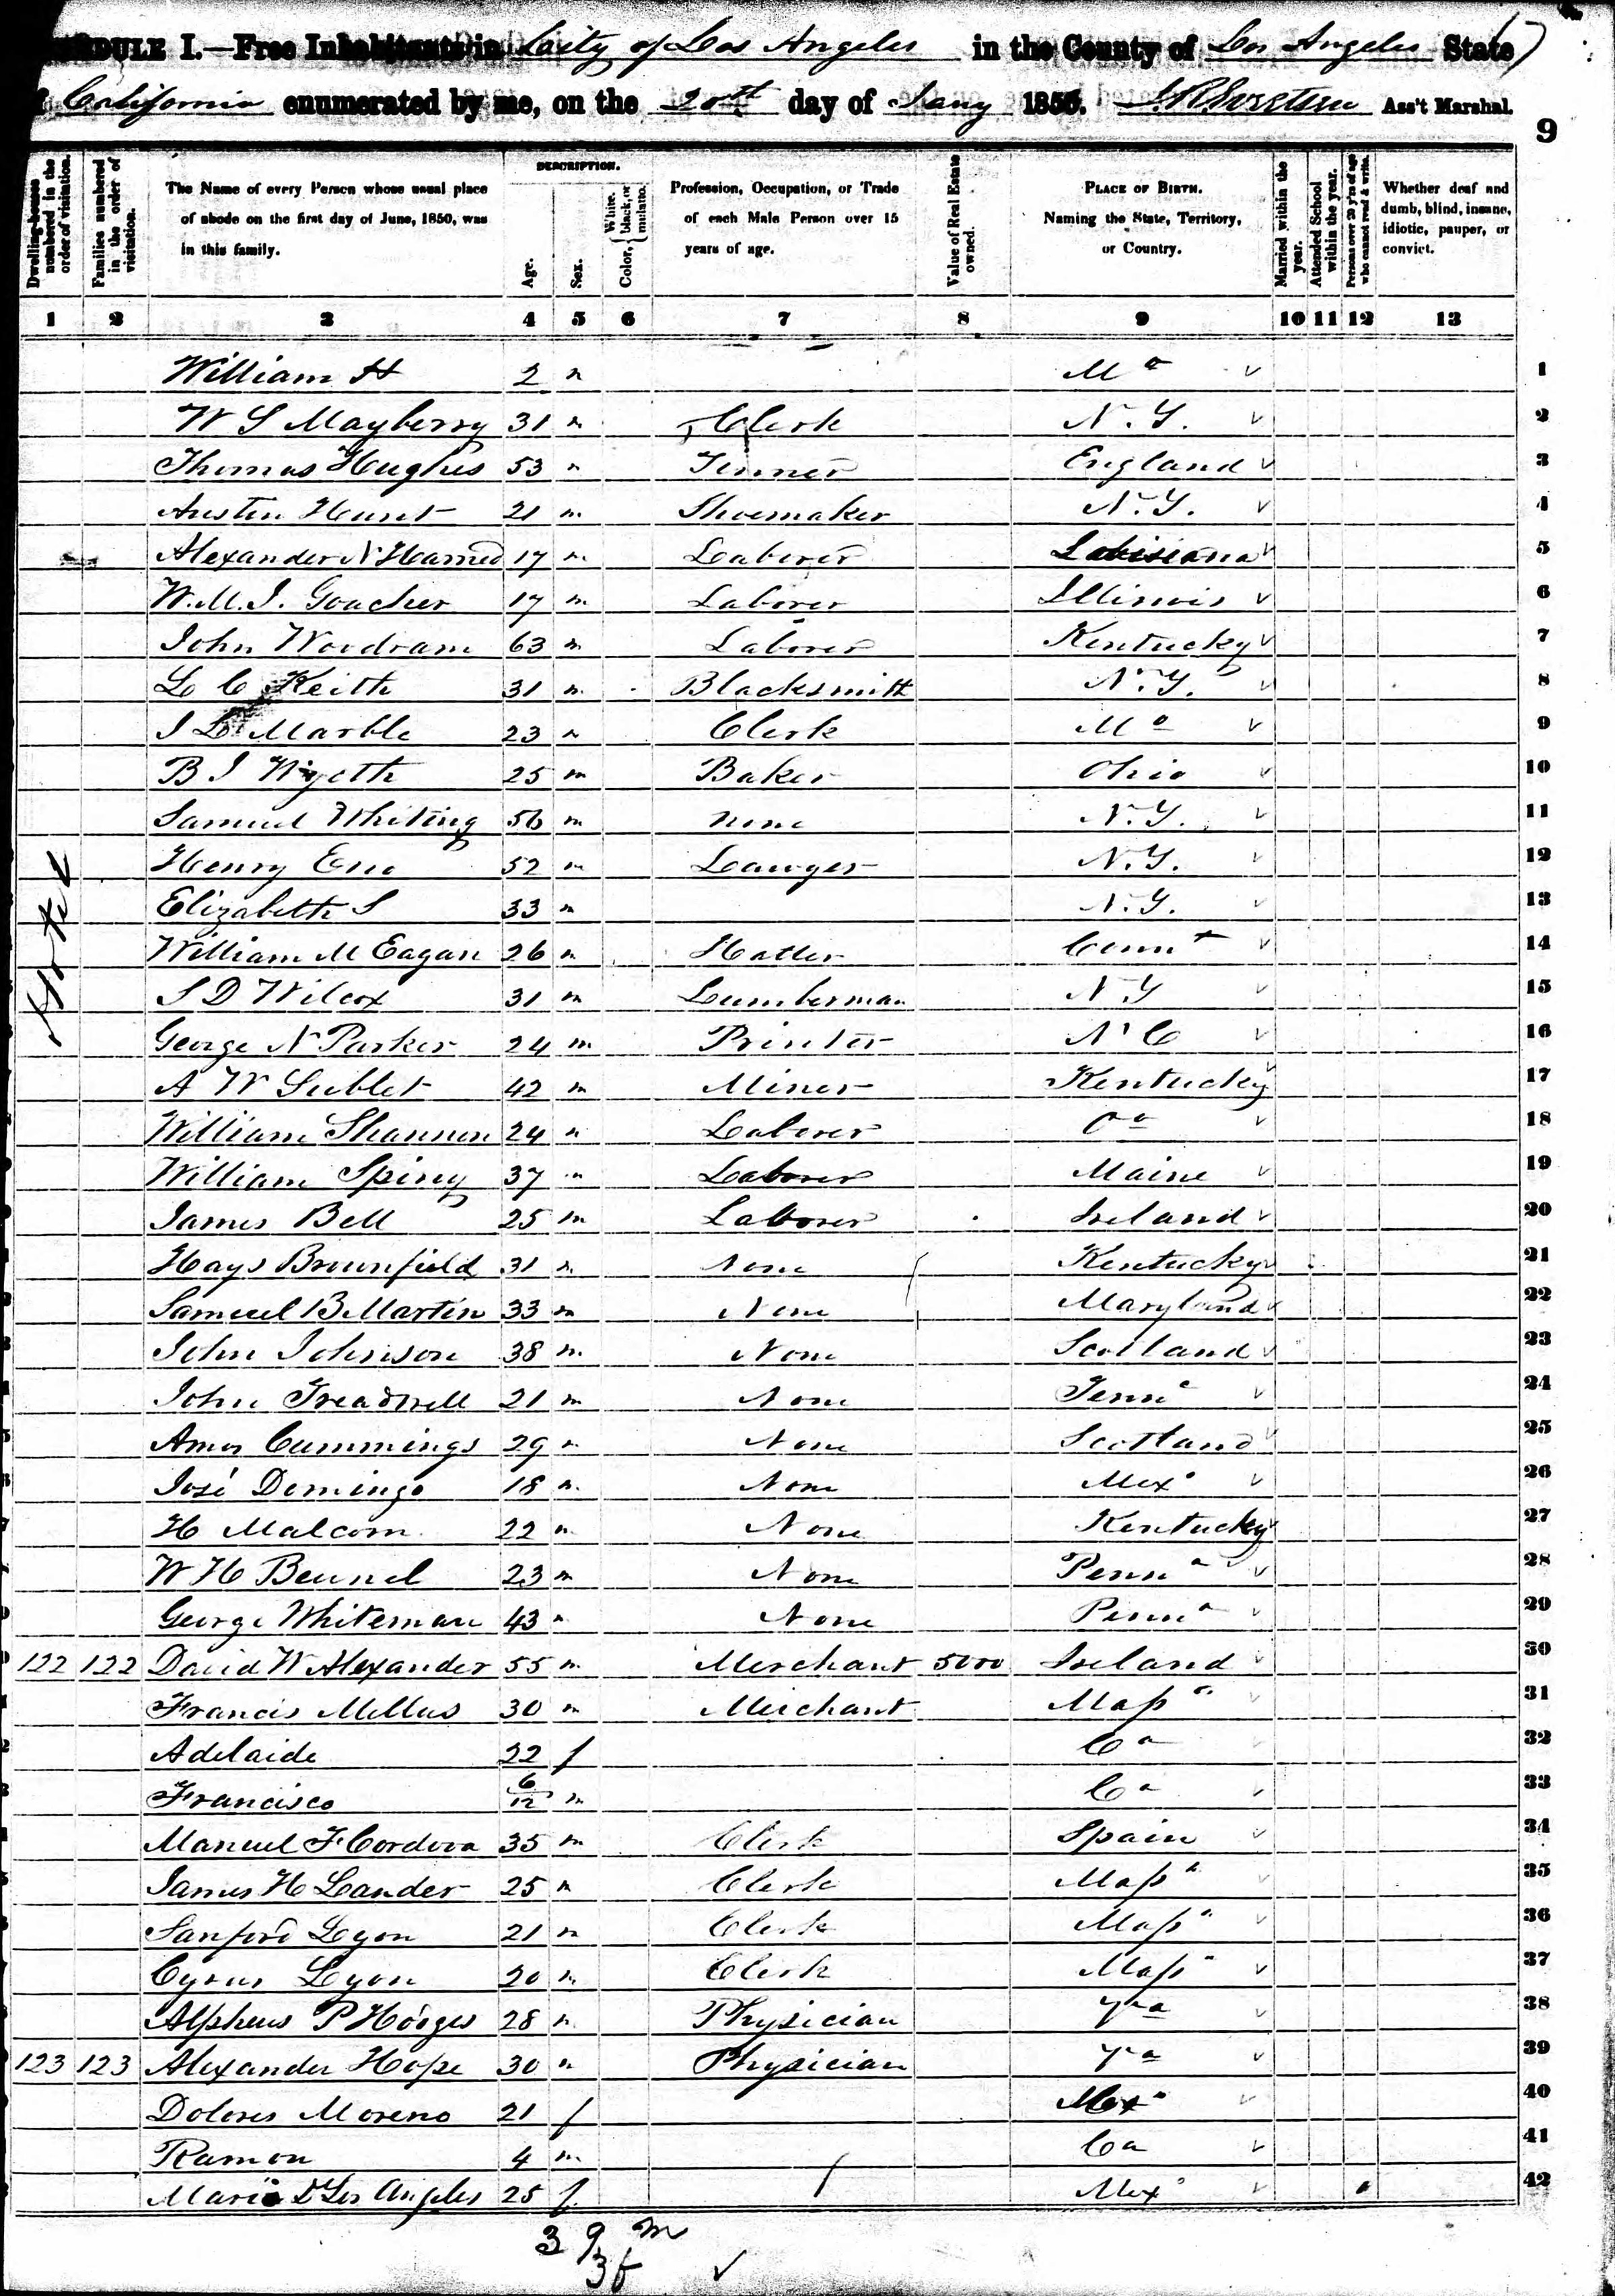 SCHEDULE I.—Free Inhabitants in City of Los Angeles in the County of Los Angeles State
of California enumerated by me, on the 20th day of Jany 1850. Ass't Marshal.
9
Dwelling-houses numbered in the order of visitation.
Families numbered in the order of visitation.
The Name of every Person whose usual place of abode on the first day of June, 1850, was in this family.
DESCRIPTION.
Age.
Sex.
Color, White, black, or mulatto.
Profession, Occupation, or Trade of each Male Person over 15 years of age.
Value of Real Estate owned.
PLACE OF BIRTH. Naming the State, Territory, or Country.
Married within the year.
Attended School within the year.
Persons over 20 y'rs of age who cannot read & write.
Whether deaf and dumb, blind, insane, idiotic, pauper, or convict.
1 2 3 4 5 6 7 8 9 10 11 12 13
William H 2 m Mo 1
W S Mayberry 31 m Clerk N.Y. 2
Thomas Hughes 53 m Tinner England 3
Austin Hunt 21 m Shoemaker N.Y. 4
Alexander N Harned 17 m Laborer Louisiana 5
W.M.J. Goacher 17 m Laborer Illinois 6
John Woodram 63 m Laborer Kentucky 7
L C Keith 31 m Blacksmith N.Y. 8
J L Marble 23 m Clerk Mo 9
B J Wyeth 25 m Baker Ohio 10
Samuel Whiting 56 m none N.Y. 11
Hotel
Henry Eno 52 m Lawyer N.Y. 12
Elizabeth S 33 m N.Y. 13
William M Eagan 26 m Hatter Connt 14
S D Wilcox 31 m Lumberman N Y 15
George N Parker 24 m Printer N C 16
A W Sublet 42 m Miner Kentucky 17
William Shannon 24 m Laborer 18
William Spiney 37 m Laborer Maine 19
James Bell 25 m Laborer Ireland 20
Hays Brownfield 31 m None Kentucky 21
Samuel B Martin 33 m None Maryland 22
John Johnson 38 m None Scotland 23
John Treadwell 21 m None Tenne 24
Amos Cummings 29 m None Scotland 25
José Domingo 18 m None Mexo 26
H Malcom 22 m None Kentucky 27
W H Beunel 23 m None Penna 28
George Whiteman 43 m None Penna 29
122 122 David W Alexander 55 m Merchant 5000 Ireland 30
Francis Mellus 30 m Merchant Massa 31
Adelaide 22 f Ca 32
Francisco 6/12 m Ca 33
Manuel F Cordova 35 m Clerk Spain 34
James H Lander 25 m Clerk Massa 35
Sanford Lyon 21 m Clerk Massa 36
Cyrus Lyon 20 m Clerk Massa 37
Alpheus P Hodges 28 m Physician Va 38
123 123 Alexander Hope 30 m Physician Va 39
Dolores Moreno 21 f Mexo 40
Ramon 4 m Ca 41
Maria D Los Angeles 25 f Mexo 42
39 m
3 f